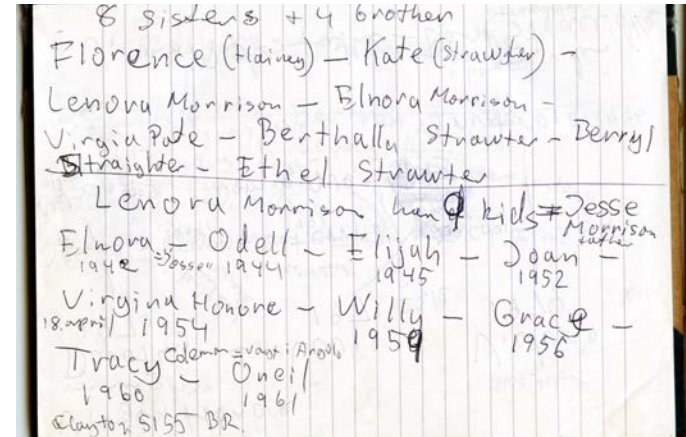 8 sisters + 4 brother
Florence (Hainey) – Kate (Strawter) –
Lenora Morrison – Elnora Morrison –
Virgia Pate – Berthally Strawter – Berryl
Straighter – Ethel Strawter
Lenora Morrison han 9 kids = Jesse
Morrison
father
Elnora – Odell – Elijah – Joan –
1942 "Jesse" 1944 1945 1952
Virgina Honore – Willy – Grace –
18. april 1954 1959 1956
Tracy Colemn = vagt i Angola
– Oneil
1960 1961
Clayton 5155 BR